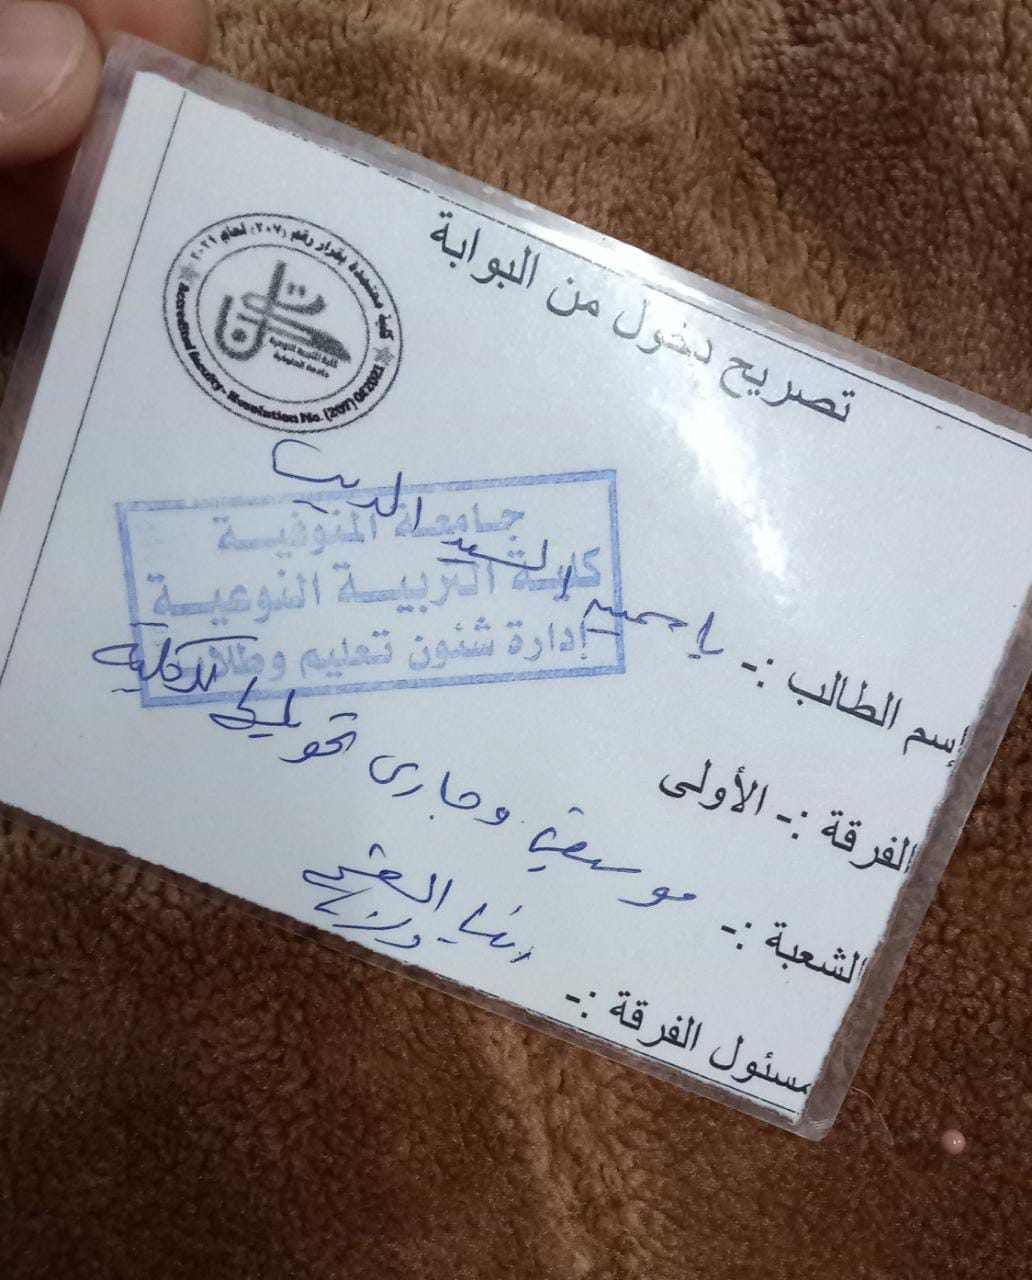 تصريح دخول من البوابة
كلية معتمدة بقرار رقم (٢٠٧) لعام ٢٠٢١
كلية التربية النوعية
جامعة المنوفية
Accredited Faculty - Resolution No. (207) Of 2021
جامعة المنوفية
كلية التربية النوعية
إدارة شئون تعليم وطلاب
إسم الطالب :- السيد الديب
الفرقة :- الأولى
الشعبة :- موسيقى وجارى
مسئول الفرقة :-